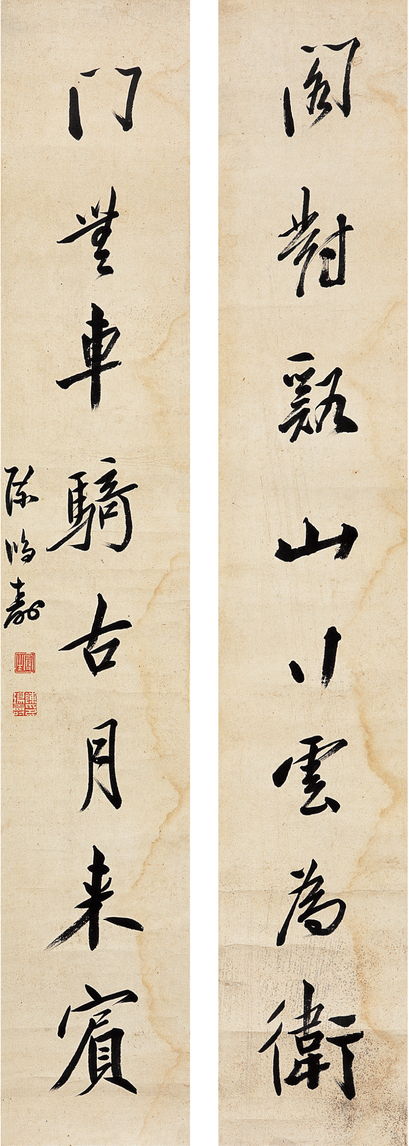 閣對谿山雲為衛
門無車騎古月来賓
陳鴻壽